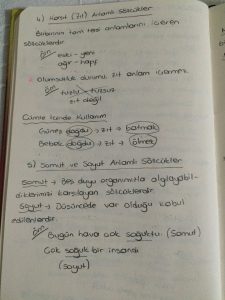 4) Karşıt (Zıt) Anlamlı Sözcükler
Birbirinin tam tersi anlamlarını içeren
sözcüklerdir.
örn eski - yeni
ağır - hafif
* Olumsuzluk durumu zıt anlam içermez.
örn tuzlu - tuzsuz
zıt değil
Cümle İçinde Kullanım
Güneş doğdu → zıt → batmak
Bebek doğdu → zıt → ölmek
5) Somut ve Soyut Anlamlı Sözcükler
Somut → Beş duyu organımızla algılayabil-
diklerimizi karşılayan sözcüklerdir.
Soyut → Düşüncede var olduğu kabul
edilenlerdir.
örn Bugün hava çok soğuktu. (Somut)
Çok soğuk bir insandı
(Soyut)